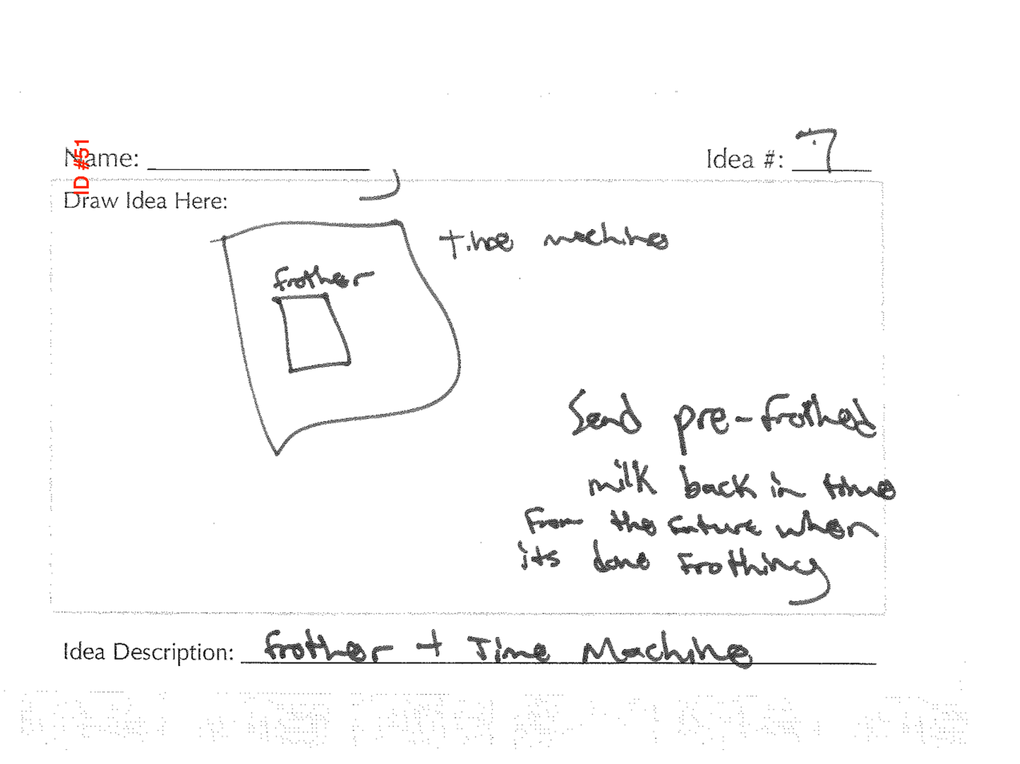 ID #51
Name:
Idea #: 7
Draw Idea Here:
time machine
frother
Send pre-frothed
milk back in time
from the future when
its done frothing
Idea Description: frother + Time Machine